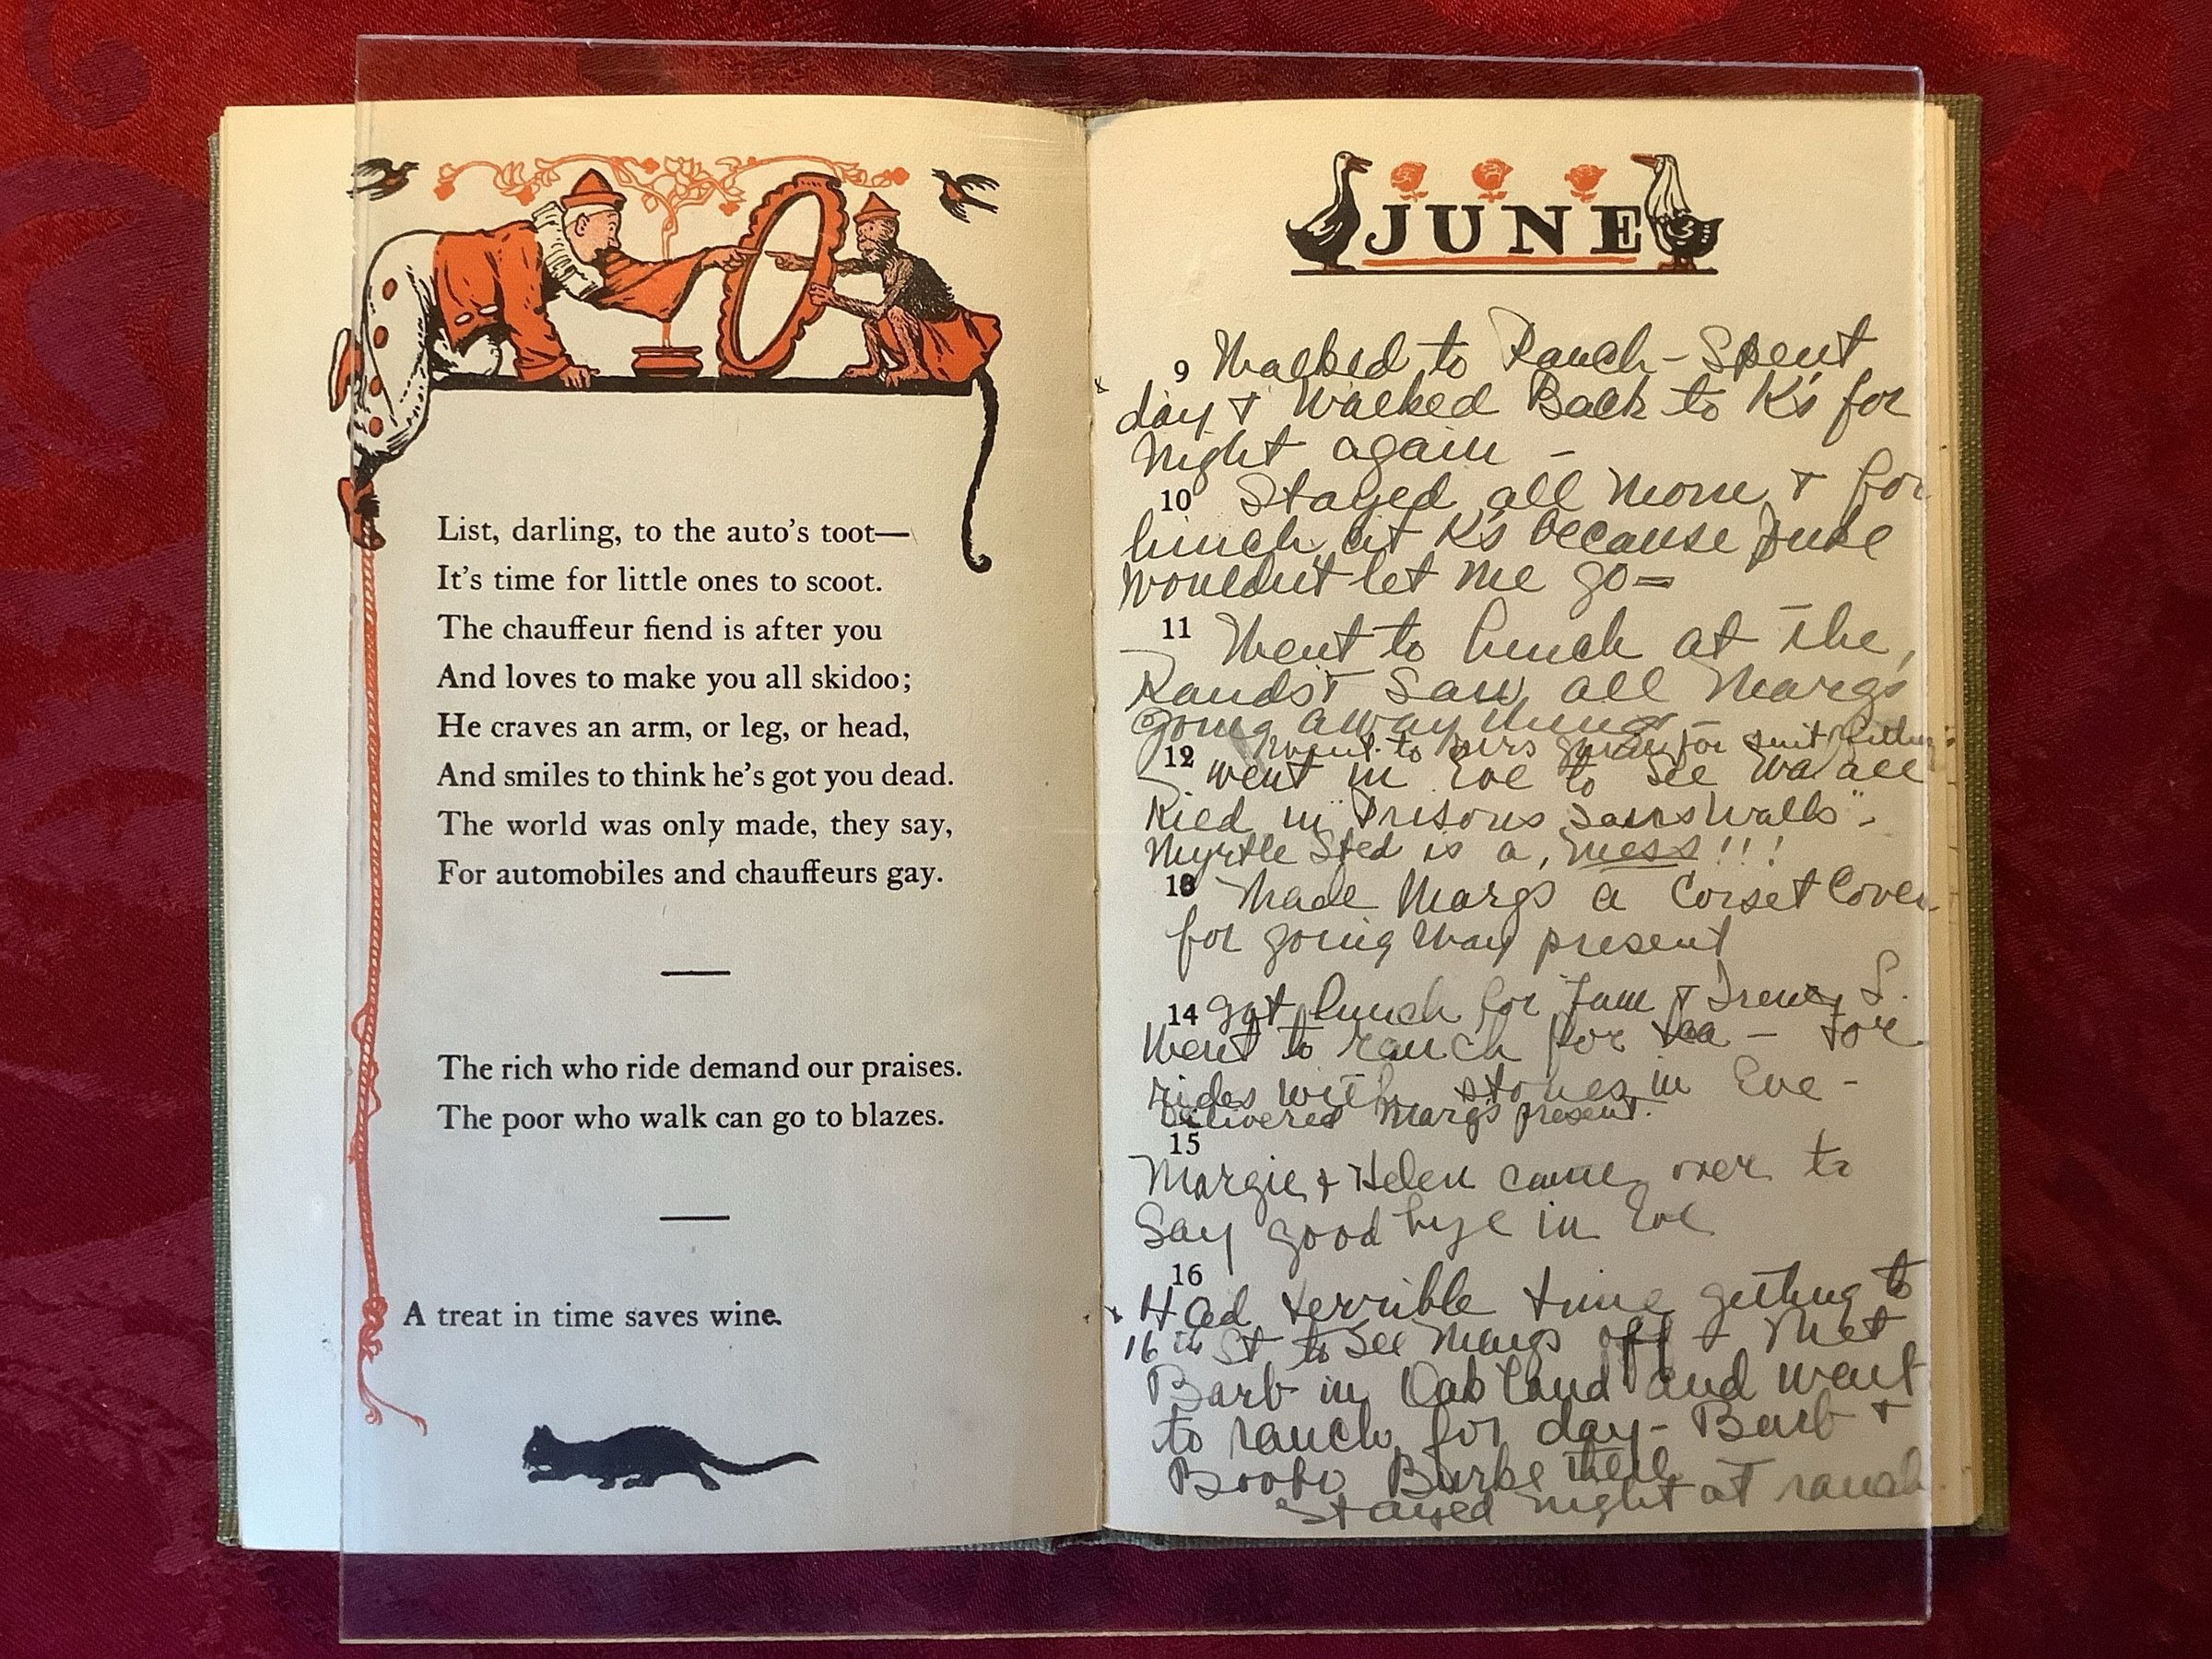 List, darling, to the auto's toot—
It's time for little ones to scoot.
The chauffeur fiend is after you
And loves to make you all skidoo;
He craves an arm, or leg, or head,
And smiles to think he's got you dead.
The world was only made, they say,
For automobiles and chauffeurs gay.
The rich who ride demand our praises.
The poor who walk can go to blazes.
A treat in time saves wine.
JUNE
9 Walked to Ranch - Spent
day + Walked Back to K's for
Night again -
10 Stayed all Morn + for
lunch at K's because
wouldn't let me go =
11 Went to lunch at the
Rands + Saw all Margs
going away things
12 Went to Mrs for suit fitting
went in Eve to see Wallace
Ried in "Prisons Sans Walls" -
Myrtle Sted is a, mess!!!
13 Made Margs a Corset Cover
for going way present
14 got lunch for Fam + Irene S.
Went to ranch for tea - for
rides with stones in Eve -
Delivered Marg's present.
15
Margie + Helen came over to
Say good bye in Eve
16
x Had terrible time getting to
16th St to See Margs off + Met
Barb in Oakland and went
to ranch for day - Barb +
Boobo Burke there
Stayed night at ranch